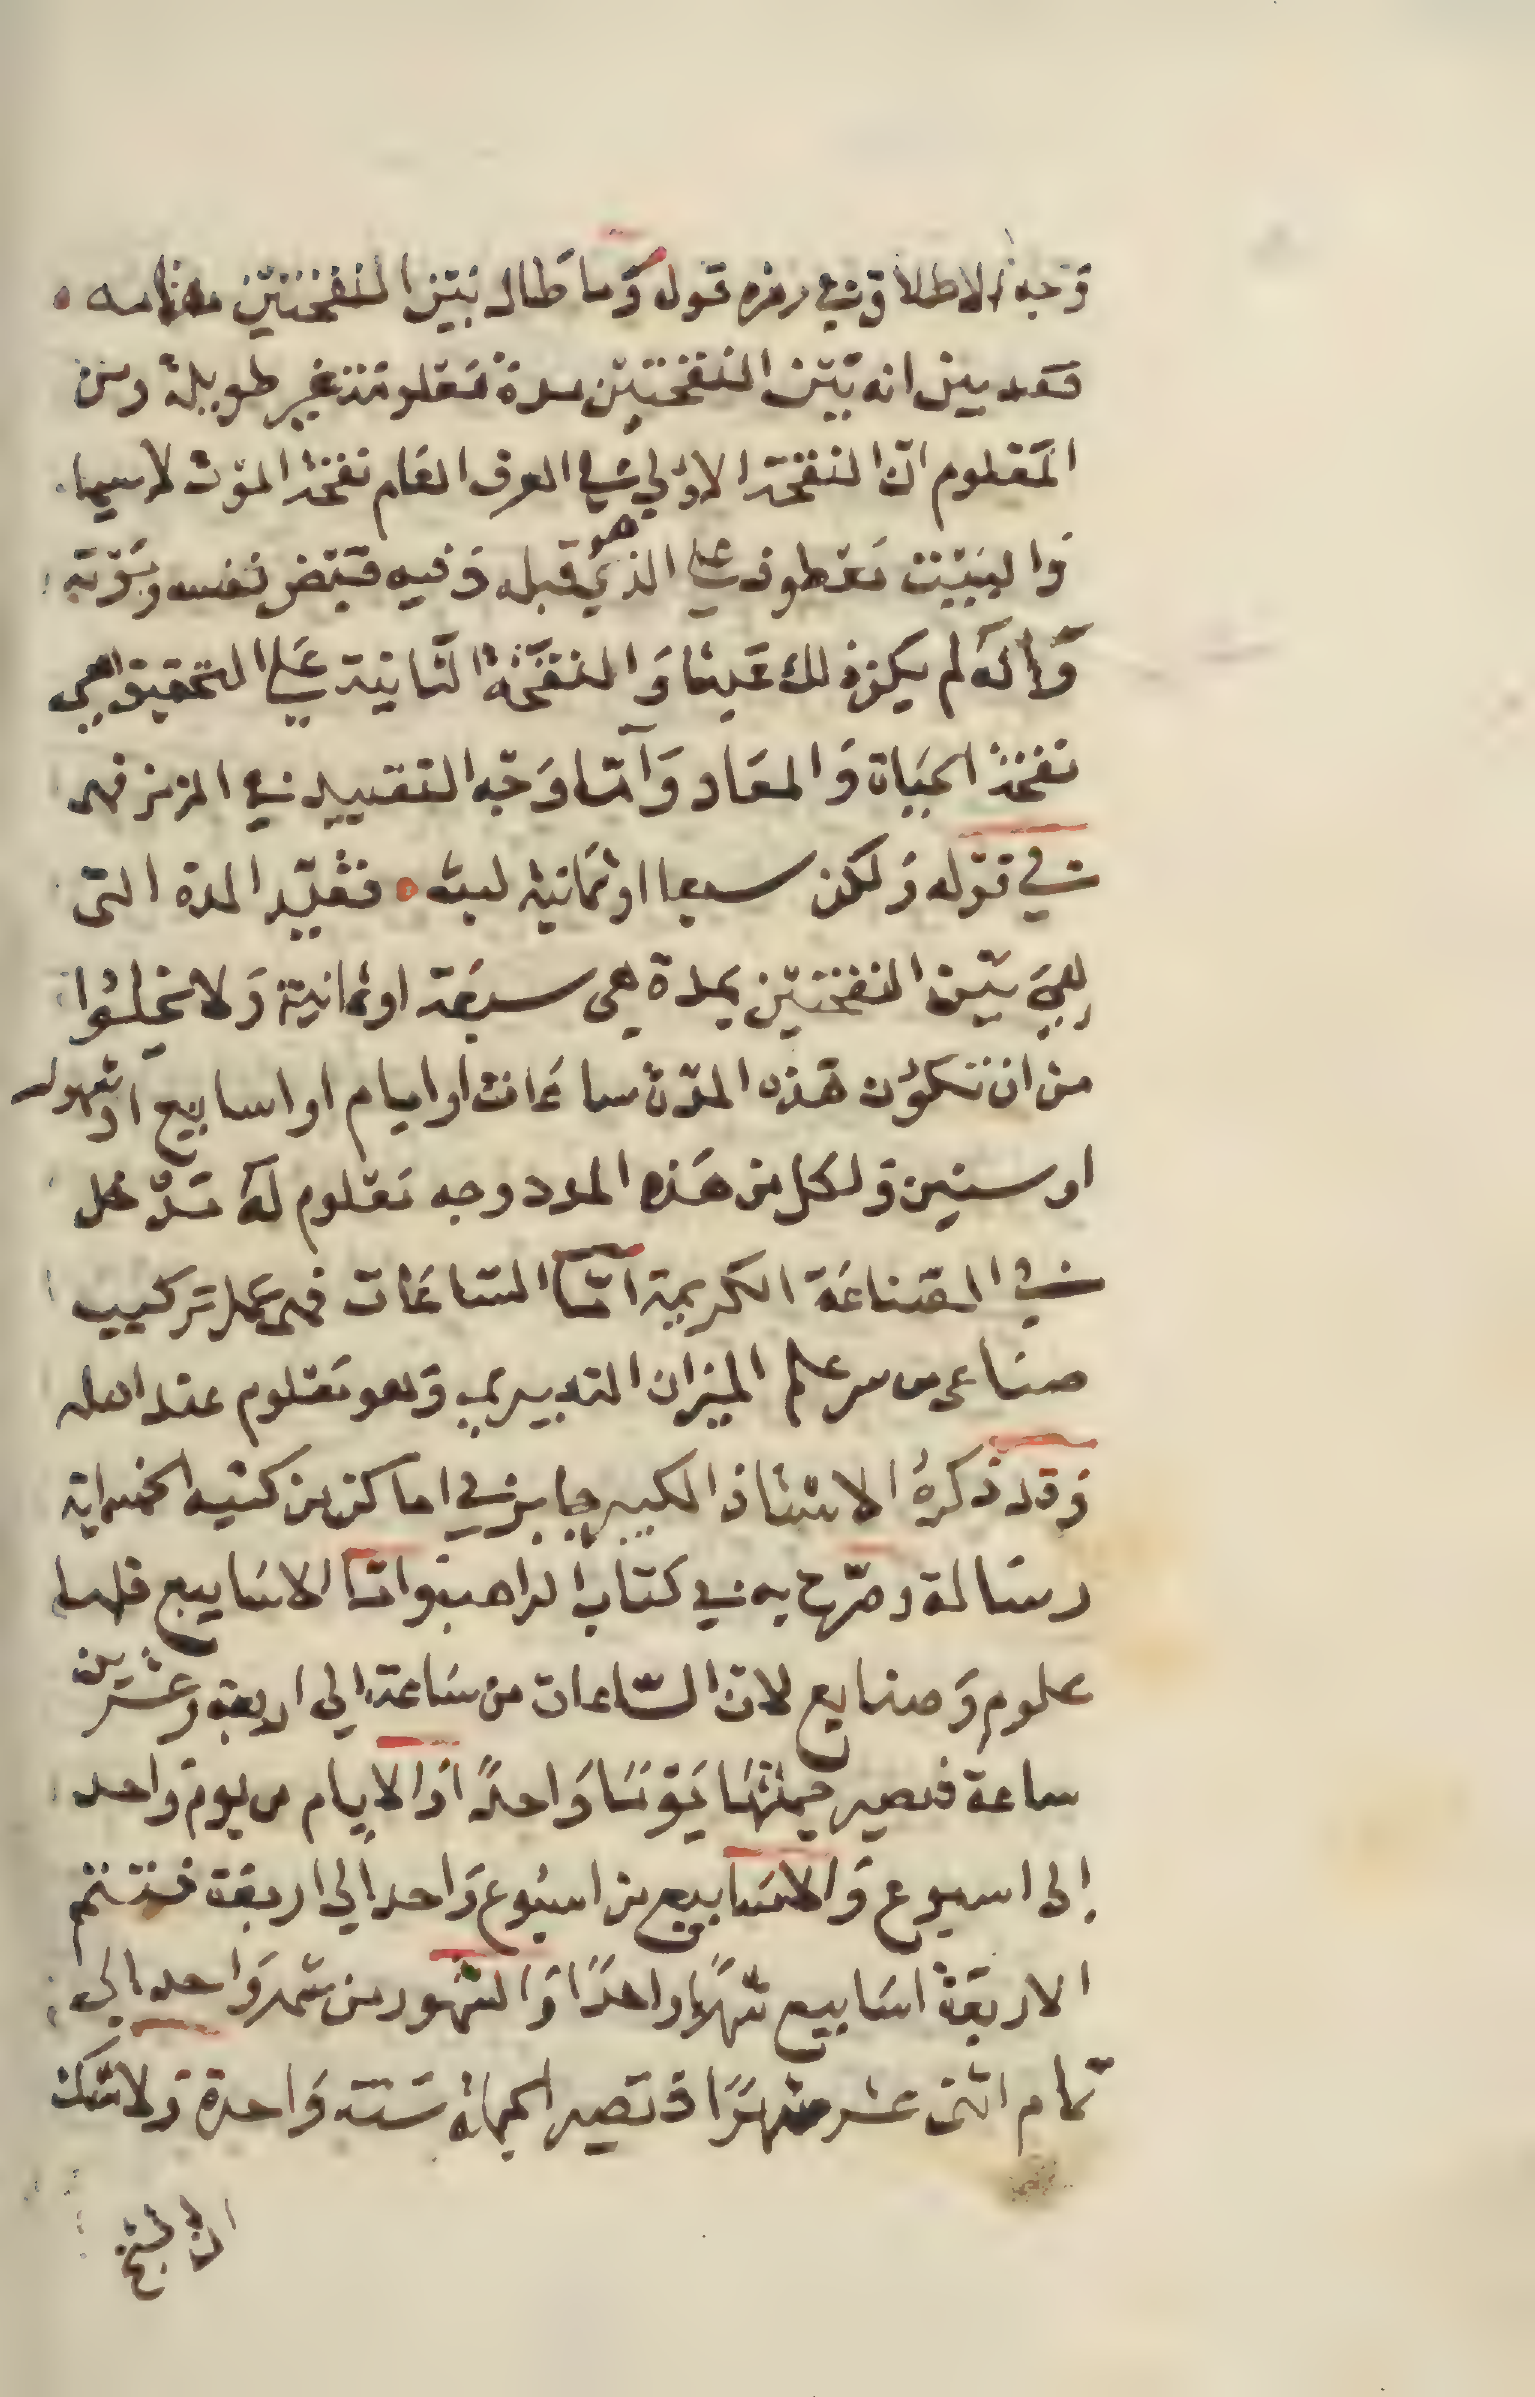 وَجه الاطلاق في رمزه قوله وَما طال بَيْن النفختين منامه
فقد بين انه بَيْن النفختين مدة مَعلومة غير طويلة ومن
المَعلوم انّ النفخة الاولي في العرف العَام نفخة المَوت لاسيما
وَالبَيْت مَعطوف علي الذي هو قبله وَفيه قبْض نفسه وَموْته
وَلانه لم يكن ذلك عَبثا وَالنفخَة الثانية علي التحقيق هي
نفخة الحَياة وَالمعَاد وَأمّا وَجْه التقييد في الرمز فهو
في قوْله وَلكن سبعا او ثمانية لبث فقيّد المدة التى
هي بَيْن النفختيْن بمدة هي سبعَة او ثمانية وَلا يخلوا
من ان تكوُن هَذه المدّة ساعَات او ايام او اسابيع او شهور
او سنين وَلكل من هَذه المدد وجه مَعْلوم لهَ مَدْخل
في الصّناعَة الكريمة امّا السّاعَات فهي عمل تركيب
صنَاعى من سر علم الميزان التدبيري وَهو مَعْلوم عند اهله
وَقد ذكرهُ الاسْتاذ الكبير جابر في اماكن من كتبه الخمسماية
رسَالة وصرّح به في كتاب الراهب وامّا الاسَابيع فلها
علوم وَصنايع لانّ السّاعات من سَاعة الي اربعة وعشرين
ساعة فتصير جملتهَا يَوْمًا وَاحدًا وَالايام من يوم وَاحد
إلى اسبوع وَالاسَابيع من اسبُوع وَاحد الي اربعَة فتتم
الاربَعَة اسَابيع شهرًا واحدًا وَالشهور من شهر وَاحد الي
تمام اثنى عشر شهرًا وَتَصير الجملة سَنَة وَاحدة وَلا شك
ان الشيخ